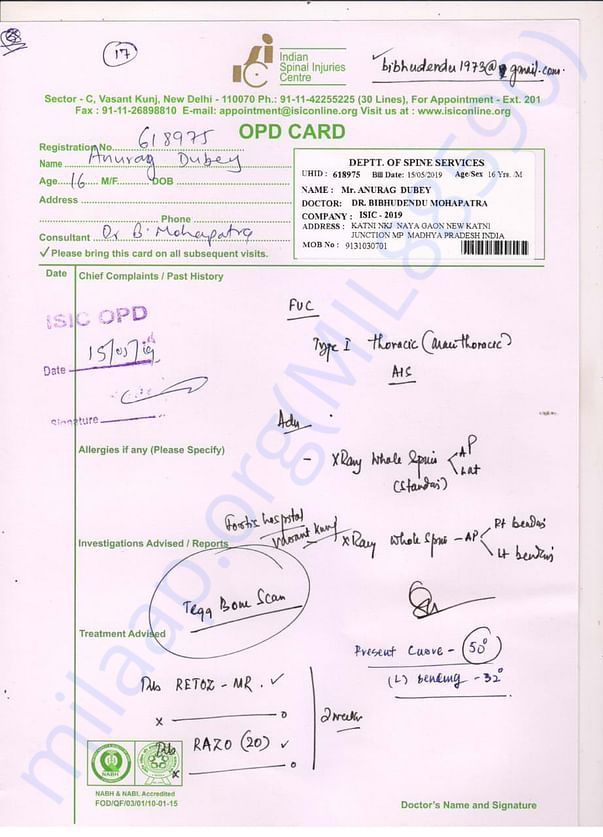 17
Indian
Spinal Injuries
Centre
bibhudendu1973@gmail.com.
Sector - C, Vasant Kunj, New Delhi - 110070 Ph.: 91-11-42255225 (30 Lines), For Appointment - Ext. 201
Fax : 91-11-26898810 E-mail: appointment@isiconline.org Visit us at : www.isiconline.org
OPD CARD
Registration No. 618975
Name Anurag Dubey
Age 16 M/F DOB
Address
Phone
Consultant Dr B. Mohapatra
✓ Please bring this card on all subsequent visits.
DEPTT. OF SPINE SERVICES
UHID : 618975 Bill Date: 15/05/2019 Age/Sex 16 Yrs. /M
NAME : Mr. ANURAG DUBEY
DOCTOR: DR. BIBHUDENDU MOHAPATRA
COMPANY : ISIC - 2019
ADDRESS : KATNI NKJ NAYA GAON NEW KATNI
JUNCTION MP MADHYA PRADESH INDIA
MOB No : 9131030701
Date Chief Complaints / Past History
ISIC OPD
Date 15/05/19
Signature
FUC
Type I thoracic (Main thoracic)
AIS
Adv
Allergies if any (Please Specify)
- XRay Whole Spine AP
Lat
(Standing)
Fortis hospital
Vasant Kunj
Investigations Advised / Reports
XRay Whole Spine - AP Rt bending
Lt bending
Te99 Bone Scan
Treatment Advised
Present Curve - 50°
(L) bending - 32°
Tab RETOZ - MR. ✓
x o
2 weeks
Tab RAZO (20) ✓
x o
NABH
NABH & NABL Accredited
FOD/QF/03/01/10-01-15
Doctor's Name and Signature
milaap.org(MIL88590)